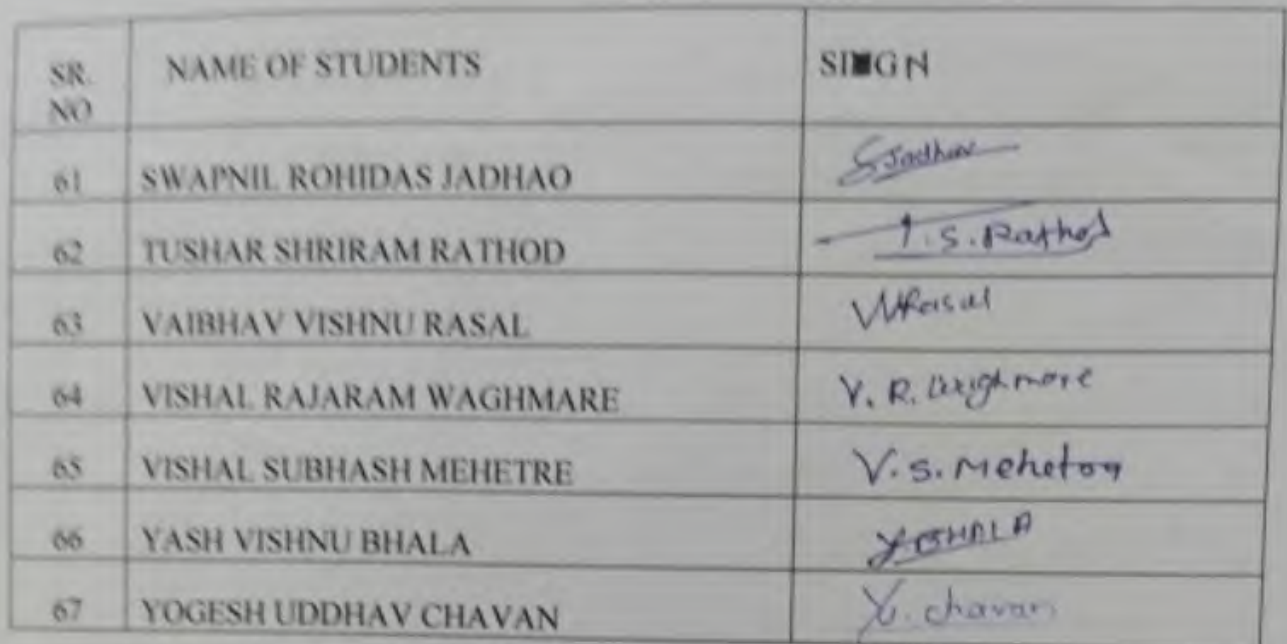 SR. NO NAME OF STUDENTS SIGN
61 SWAPNIL ROHIDAS JADHAO SJadhav
62 TUSHAR SHRIRAM RATHOD T.S.Rathod
63 VAIBHAV VISHNU RASAL VVRasal
64 VISHAL RAJARAM WAGHMARE V. R. Waghmare
65 VISHAL SUBHASH MEHETRE V.S.
66 YASH VISHNU BHALA YBHALA
67 YOGESH UDDHAV CHAVAN Y. chavan